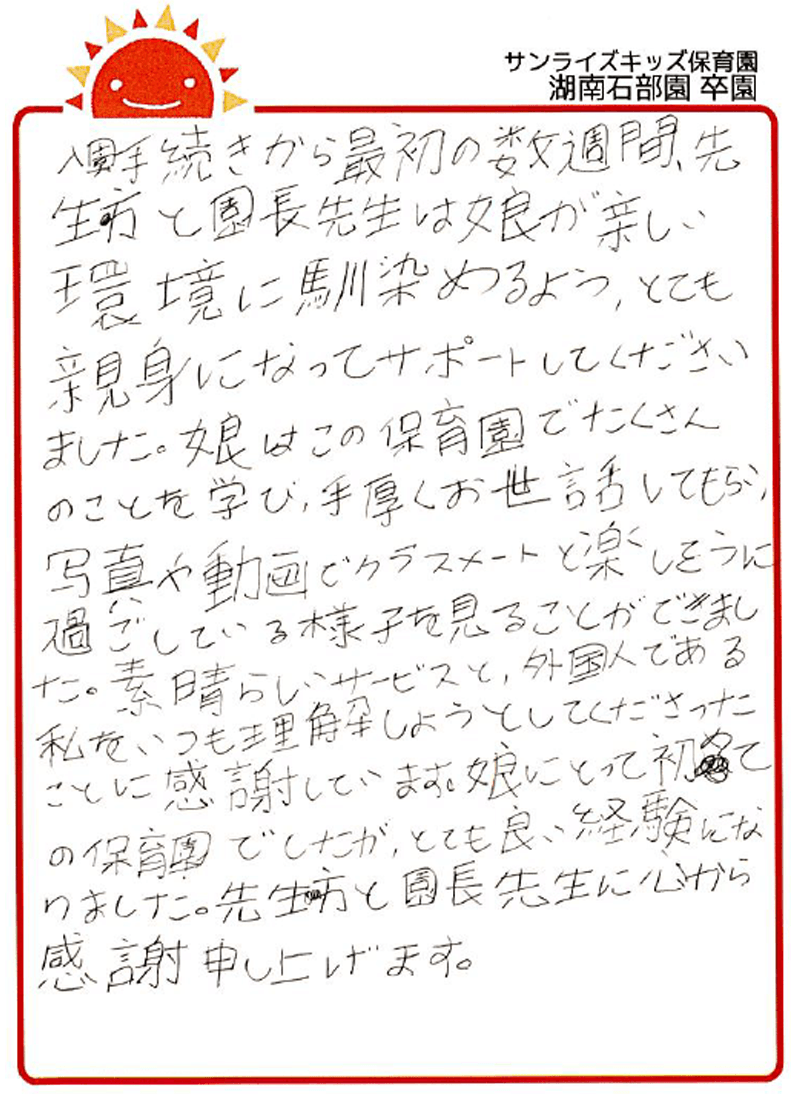 サンライズキッズ保育園
湖南石部園 卒園
入園手続きから最初の数週間、先
生方と園長先生は娘が新しい
環境に馴染めるよう、とても
親身になってサポートしてください
ました。娘はこの保育園でたくさん
のことを学び、手厚くお世話してもらい、
写真や動画でクラスメートと楽しそうに
過ごしている様子を見ることができまし
た。素晴らしいサービスと、外国人である
私をいつも理解しようとしてくださった
ことに感謝しています。娘にとって初めて
の保育園でしたが、とても良い経験にな
りました。先生方と園長先生に心から
感謝申し上げます。